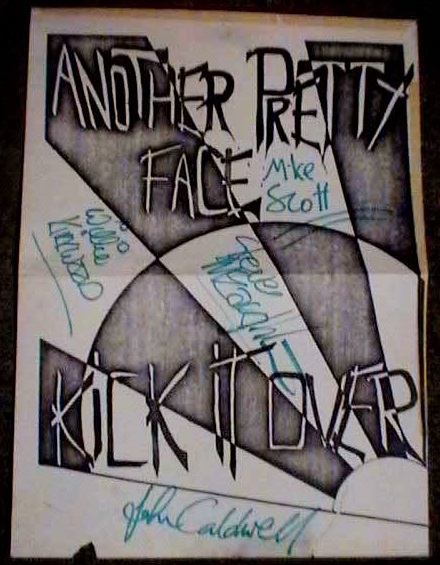 ANOTHER PRETTY
FACE
Mike
Scott
Willie
Kirkwood
KICK IT OVER
John Caldwell